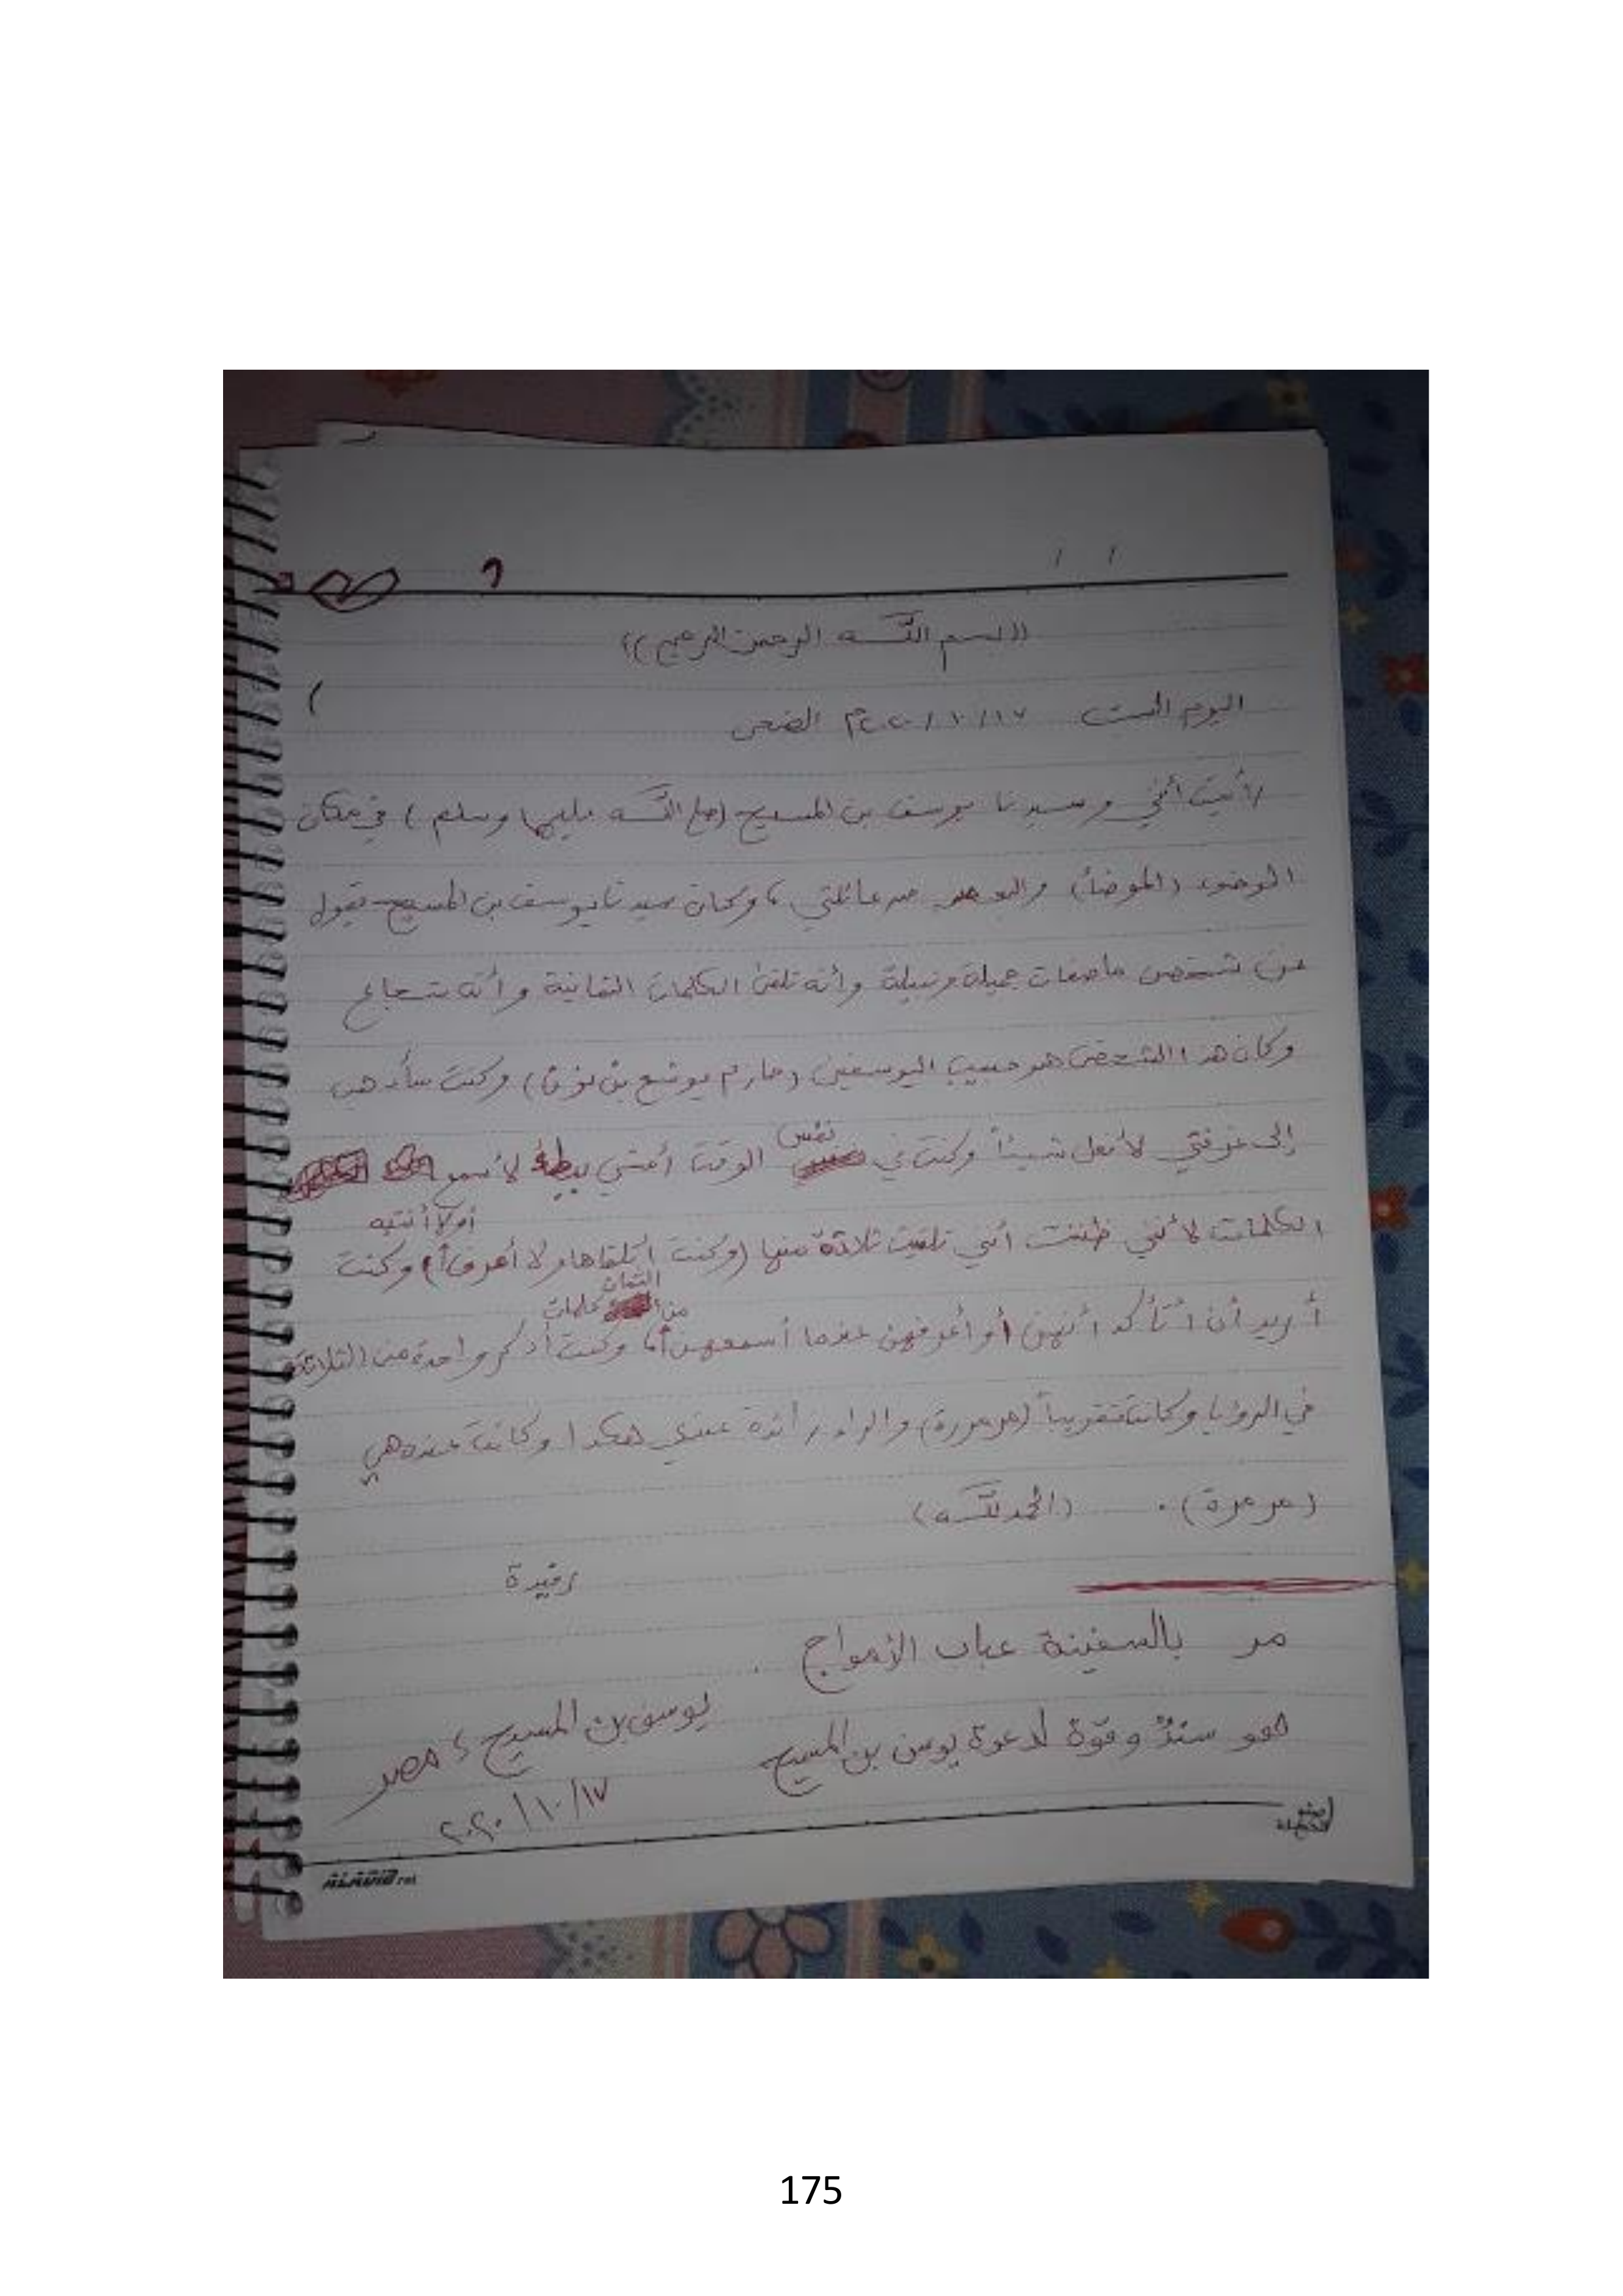 ((بسم الله الرحمن الرحيم))
اليوم السبت ١٧/١٠/٢٠٢٠م الضحى
رأيت أنني وسيدنا يوسف بن المسيح (صلى الله عليهما وسلم) في مكان
الوضوء (الموضأ) من عائلتي، وكان سيدنا يوسف بن المسيح يقول
عن شخص ما صفات جميلة ونبيلة وأنه تلقى الكلمات الثمانية وأنه شجاع
وكان هذا الشخص هو حبيب اليوسفيين (مارم يوشع بن نون) وكنت سأذهب
إلى غرفتي لأفعل شيئاً وكنت في نفس الوقت أمشي ببطء لأسمع
الكلمات لأنني ظننت أنني تلقيت ثلاثة منها (وكنت أتلقاها ولا أعرف أو لا أنتبه) وكنت
أريد أن أتأكد أنهن أو أعرفهن عندما أسمعهن، وكنت أذكر واحدة من الثلاثة من الثمان كلمات
في الرؤيا وكانت تقريباً (مرمررة) والراء زائدة عندي هكذا وكانت عنده هي
(مرمرة). (الحمد لله)
رفيدة
مر بالسفينة عباب الأمواج.
فهو سندٌ وقوّة لدعوة يوسف بن المسيح
يوسف بن المسيح، مصر
١٧/١٠/٢٠٢٠
175